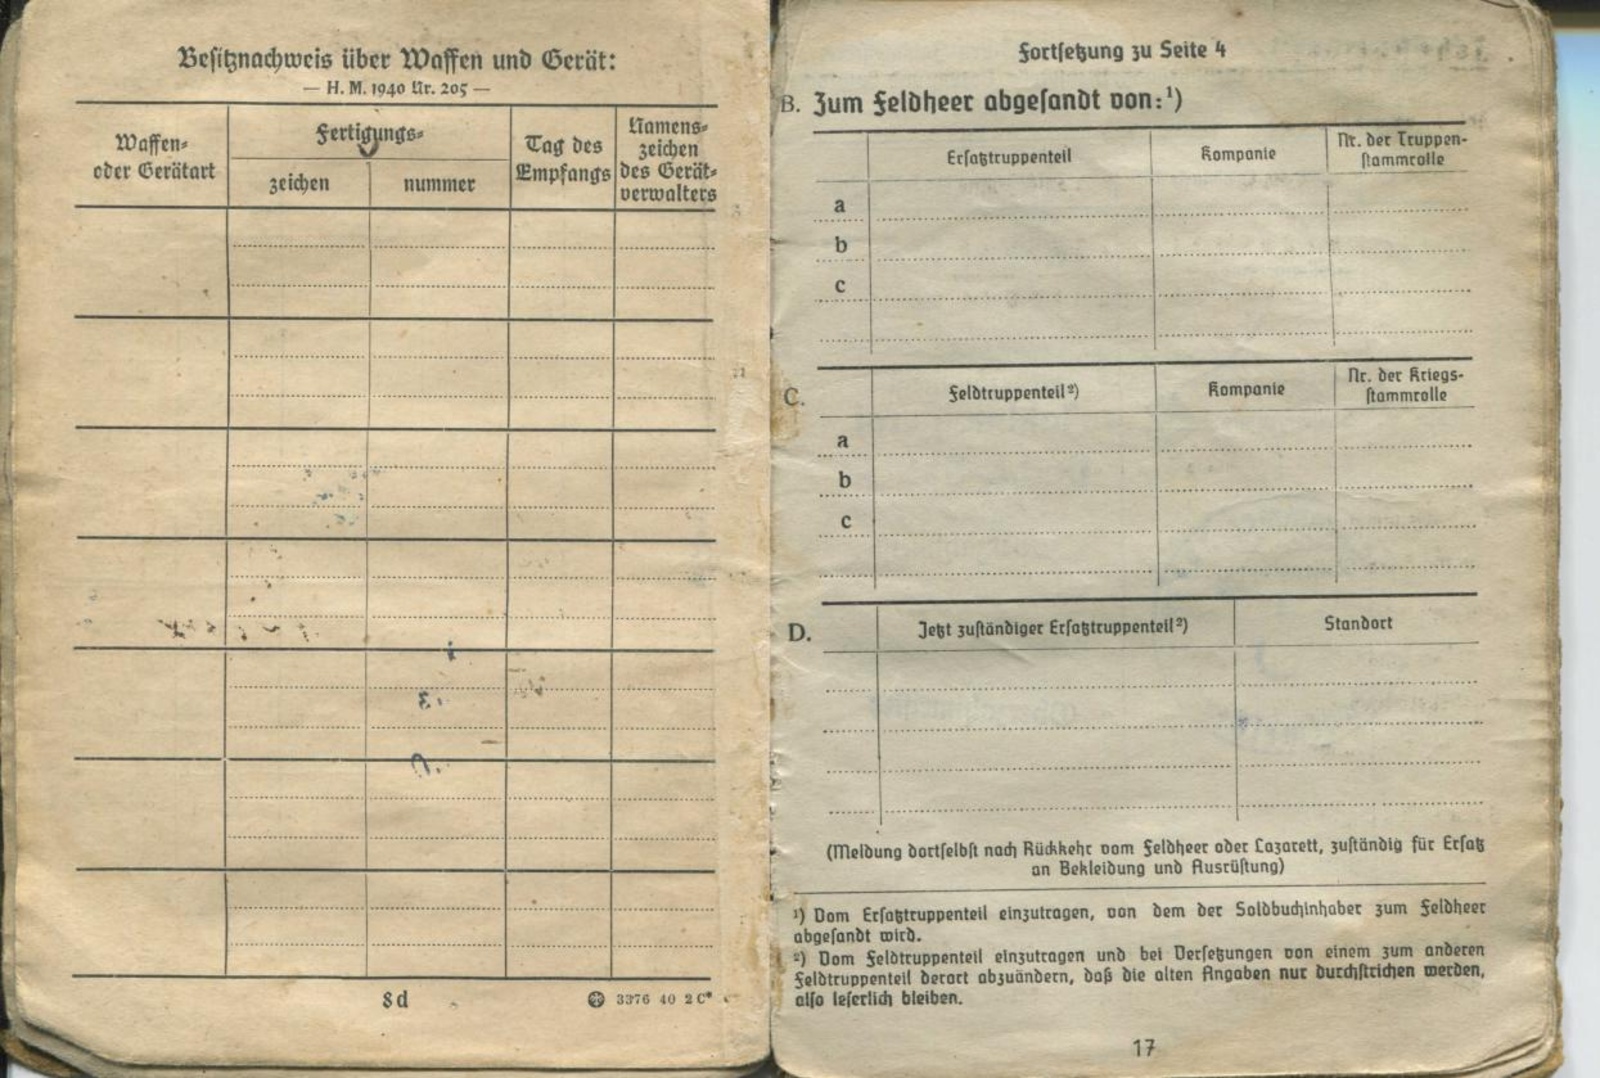 Besitznachweis über Waffen und Gerät:
— H. M. 1940 Nr. 205 —
Waffen-
oder Gerätart
Fertigungs-
zeichen
nummer
Tag des
Empfangs
Namens-
zeichen
des Gerät-
verwalters
8d
3376 40 2 C*
Fortsetzung zu Seite 4
B. Zum Feldheer abgesandt von:¹)
Ersatztruppenteil
Kompanie
Nr. der Truppen-
stammrolle
a
b
c
C.
Feldtruppenteil²)
Kompanie
Nr. der Kriegs-
stammrolle
a
b
c
D.
Jetzt zuständiger Ersatztruppenteil²)
Standort
(Meldung dortselbst nach Rückkehr vom Feldheer oder Lazarett, zuständig für Ersatz
an Bekleidung und Ausrüstung)
¹) Vom Ersatztruppenteil einzutragen, von dem der Soldbuchinhaber zum Feldheer
abgesandt wird.
²) Vom Feldtruppenteil einzutragen und bei Versetzungen von einem zum anderen
Feldtruppenteil derart abzuändern, daß die alten Angaben nur durchstrichen werden,
also leserlich bleiben.
17